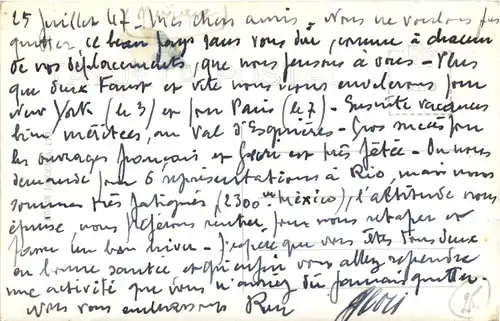 25 Juillet 47 - Mes chers amis - Nous ne voulons pas
quitter ce beau pays sans vous dire, comme à chacun
de vos déplacements, que nous pensons à vous - Plus
que deux Faust et vite nous nous envolerons pour
New York (le 3) et pour Paris (le 7) - Ensuite vacances
bien méritées, au Val d'Esquières - Gros succès pour
les ouvrages français et Géori est très fêtée - On nous
demande pour 6 représentations à Rio, mais nous
sommes très fatigués, (2300 m Mexico), l'altitude nous
épuise, nous préférons rentrer pour nous retaper et
passer un bon hiver - J'espère que vous êtes tous deux
en bonne santé et qu'enfin vous allez reprendre
une activité que vous n'auriez dû jamais quitter -
Nous vous embrassons
25